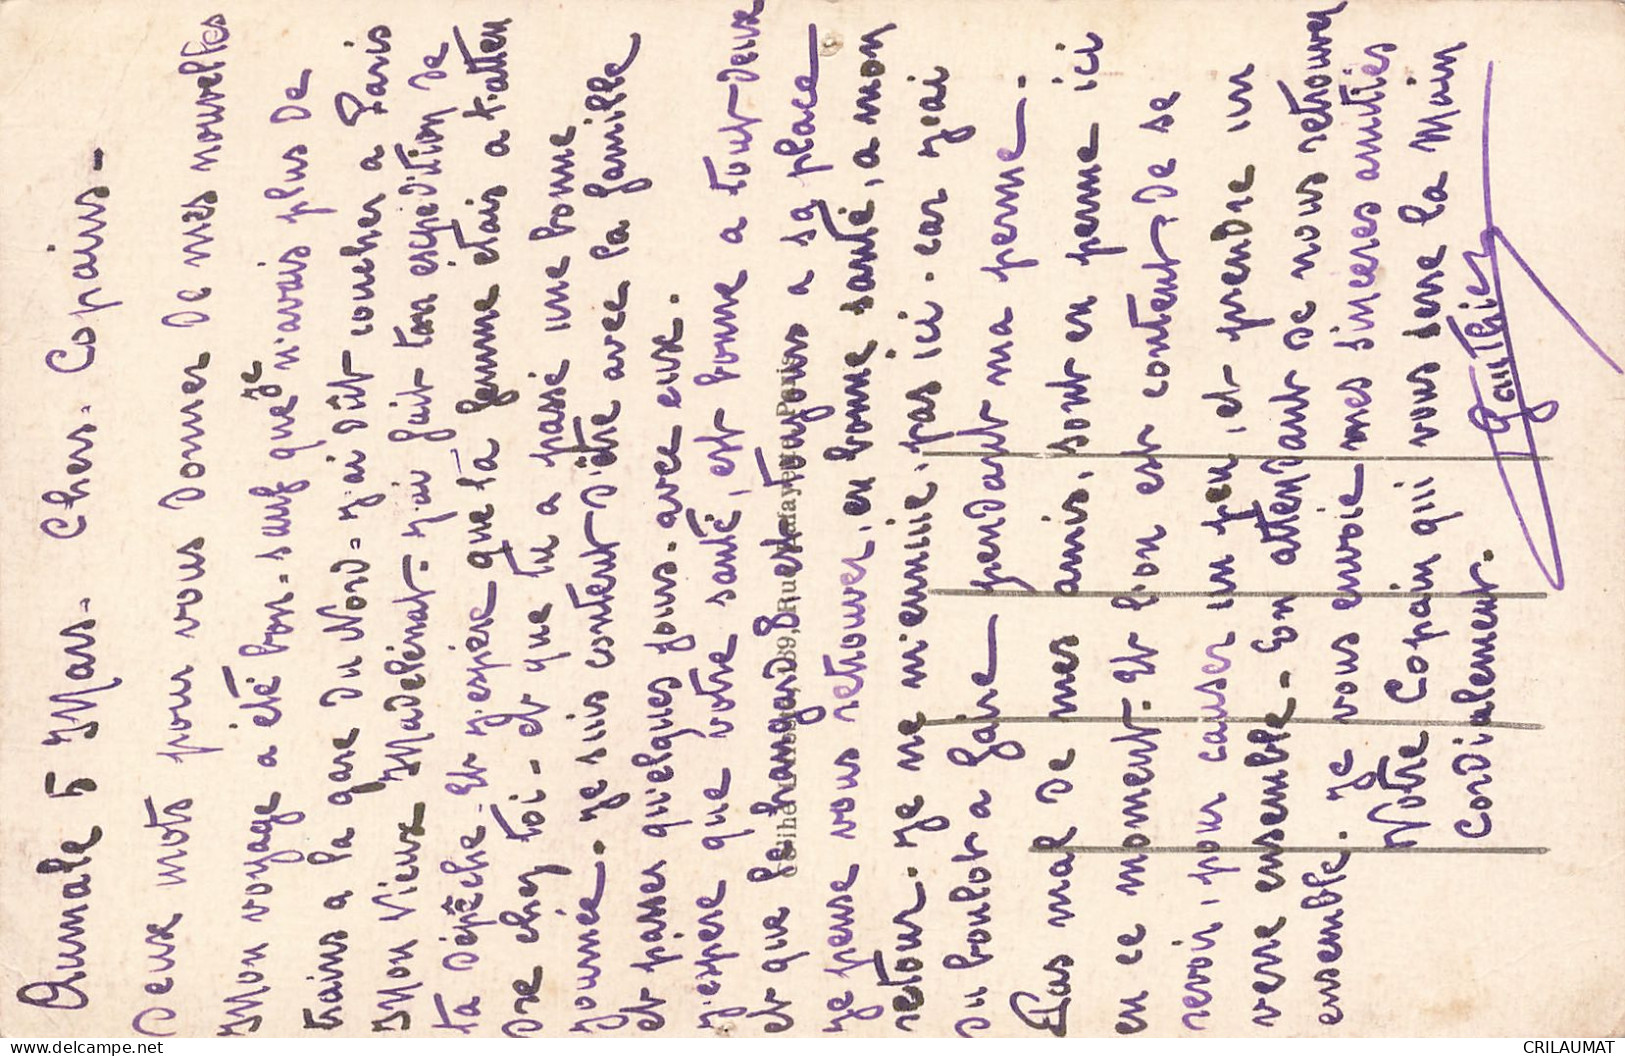 Aumale 5 Mars. Chers. Copains-
Deux mots pour vous donner de mes nouvelles
Mon voyage a été bon. sauf que je n'avais plus de
trains a la gare du Nord= j'ai dût coucher a Paris
Mon Vieux Madelénat. j'ai fait ton expédition de
ta dépêche. Et j'espère que ta femme étais a t'atten
dre chez toi. et que tu a passé une bonne
journée. je suis content d'être avec la famille
et passer quelques jours. avec eux.
J'espère que votre santé, est bonne a tout-deux
et que le hangard 8 est toujours a sa place
je pense vous retrouver, en bonne santé, a mon
retour. je ne m'ennuie, pas ici. car j'ai
du boulot a faire pendant ma perme.
Pas mal de mes amis, sont en perme ici
en ce moment. Et l'on est content, de se
revoir, pour causer un peu, et prendre un
verre ensemble. En attendant de nous retrouver
ensemble. je vous envoie mes sincères amitiés
Votre Copain qui vous serre la Main
Cordialement.
Gauthier
39, Rue Lafayette Paris
delcampe.net
CRILAUMAT